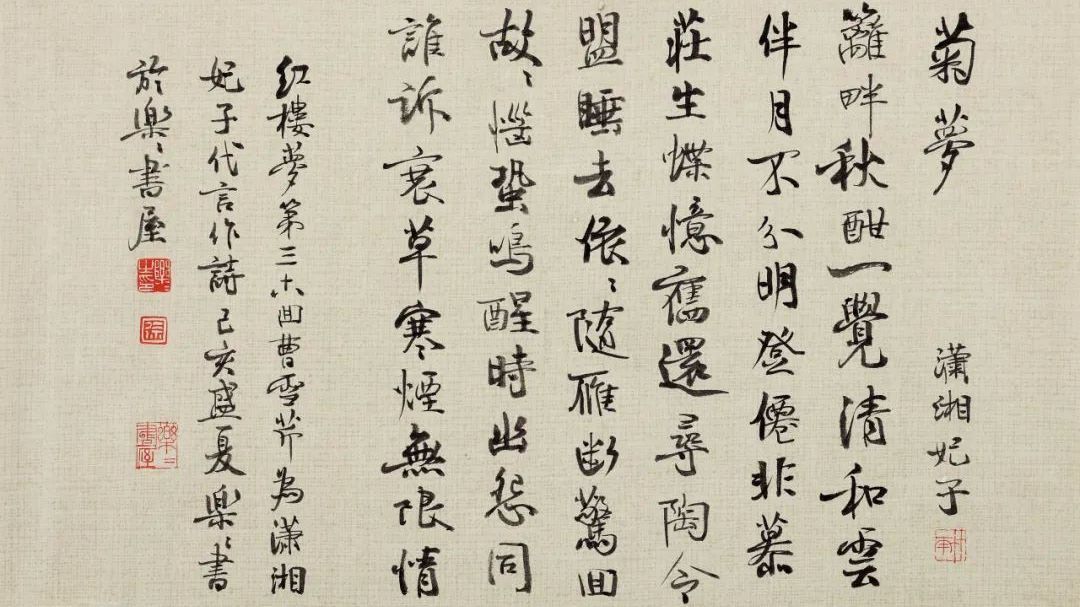 菊夢
瀟湘妃子
籬畔秋酣一覺清和雲
伴月不分明登僊非慕
莊生蝶憶舊還尋陶令
盟睡去依〻隨雁斷驚回
故〻惱蛩鳴醒時幽怨同
誰訴衰草寒煙無限情
紅樓夢第三十八回曹雪芹為瀟湘
妃子代言作詩己亥盛夏樂〻書
於樂〻書屋